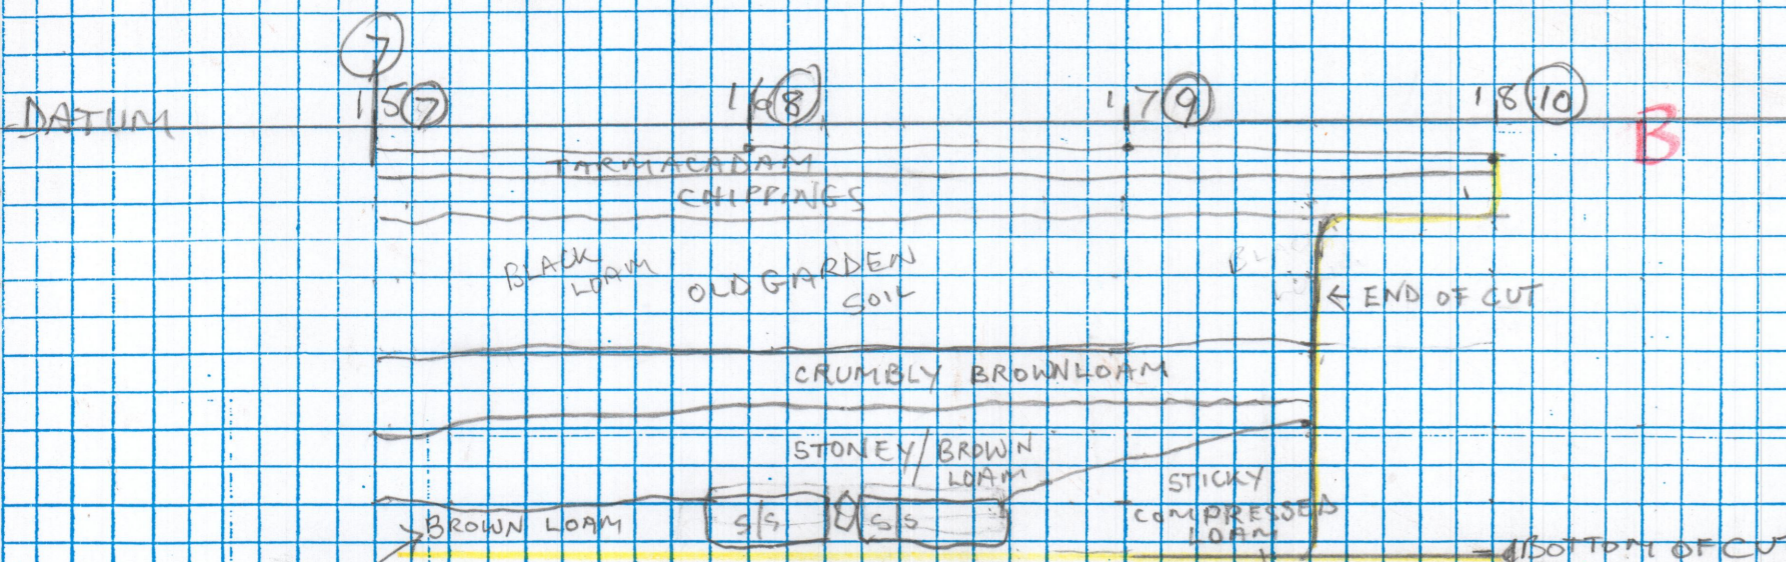 7
DATUM 15 7 16 8 17 9 18 10 B
TARMACADAM
CHIPPINGS
BLACK
LOAM
OLD GARDEN
SOIL
← END OF CUT
CRUMBLY BROWN LOAM
STONEY/BROWN
LOAM
STICKY
COMPRESSED
LOAM
BROWN LOAM
S/S
S/S
BOTTOM OF CUT